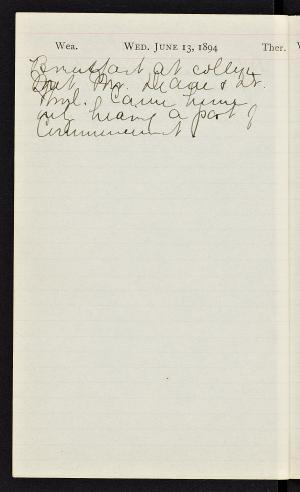 Wea. WED. JUNE 13, 1894 Ther.
Breakfast at college
Mr. & Dr.
Came home
after hearing a part of
Commencement